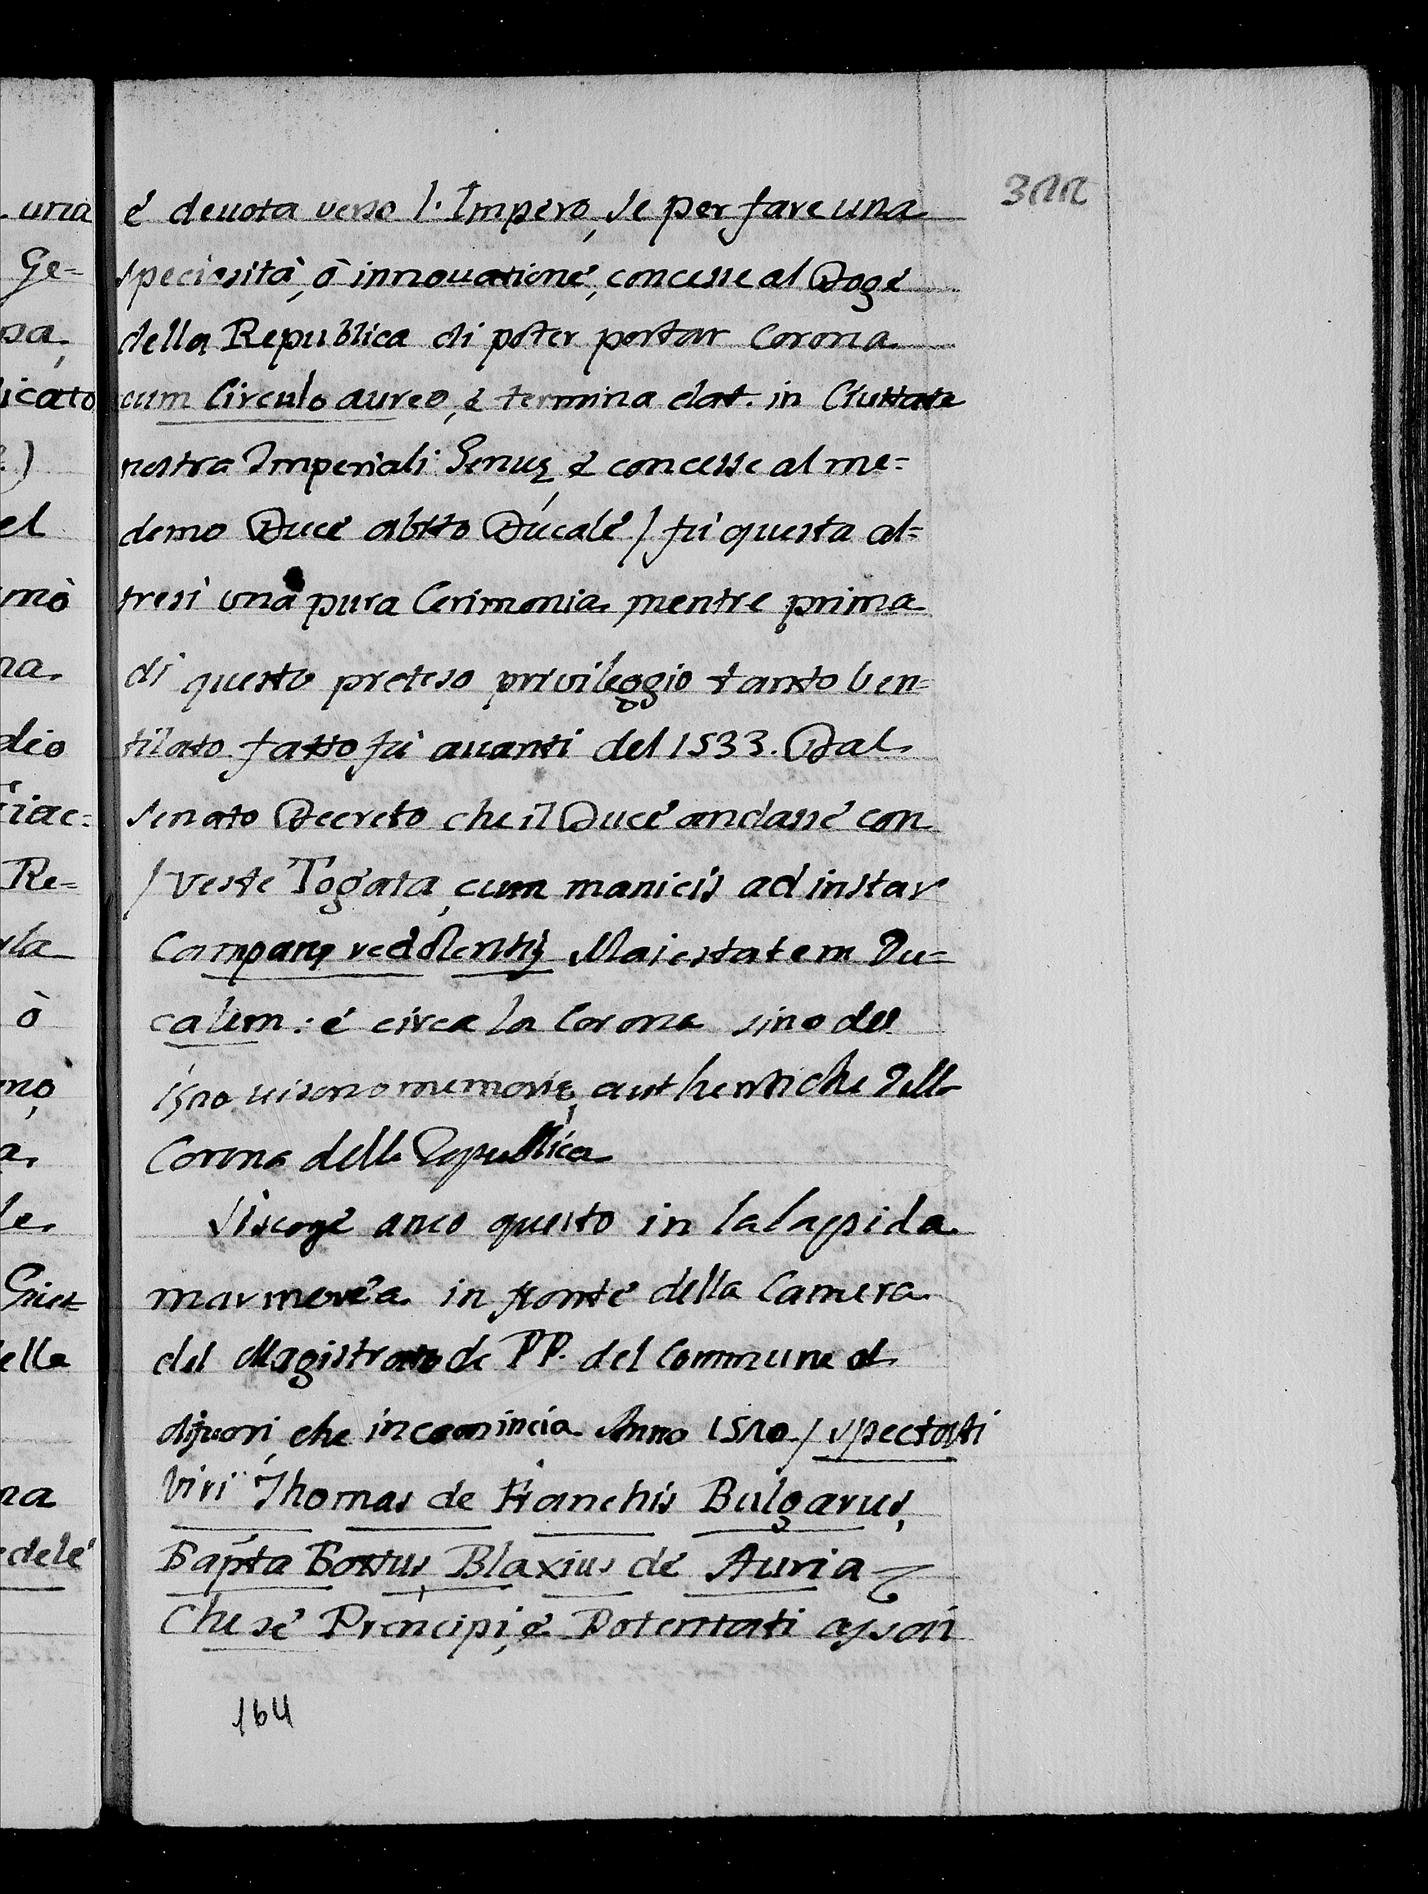 é deuota verso l'Impero, se per fare una
speciosità, ò innouatione, concesse al Doge
della Republica di poter portar Corona
cum Circulo aureo, é termina dat. in Ciuitate
nostra Imperiali Genuę é concesse al me=
demo Duce abito Ducale / fú questa al=
tresi una pura Cerimonia mentre prima
di questo preteso privileggio tanto ven=
tilato fatto fú auanti del 1533. Dal
senato Decreto che il Duce andasse con
/ veste Togata, cum manicis ad instar
Campanę reddentis Maiestatem Du=
calem: é circa la Corona sino del
vi sono memorie, authentiche della
Corona della Republica
Si scorge anco questo in la lapida
marmorea in fronte della Camera
del Magistrato de PP. del Commune al
difuori, che incomincia Anno / spectati
Viri Thomas de Franchis Bulgarus,
Bapta Blaxius de Auria
Che sé Principi, é Potentati assai
164
una
Ge=
sa,
licato
el
mò
na
dio
iac=
Re=
la
ò
no,
a
le
ella
na
dele